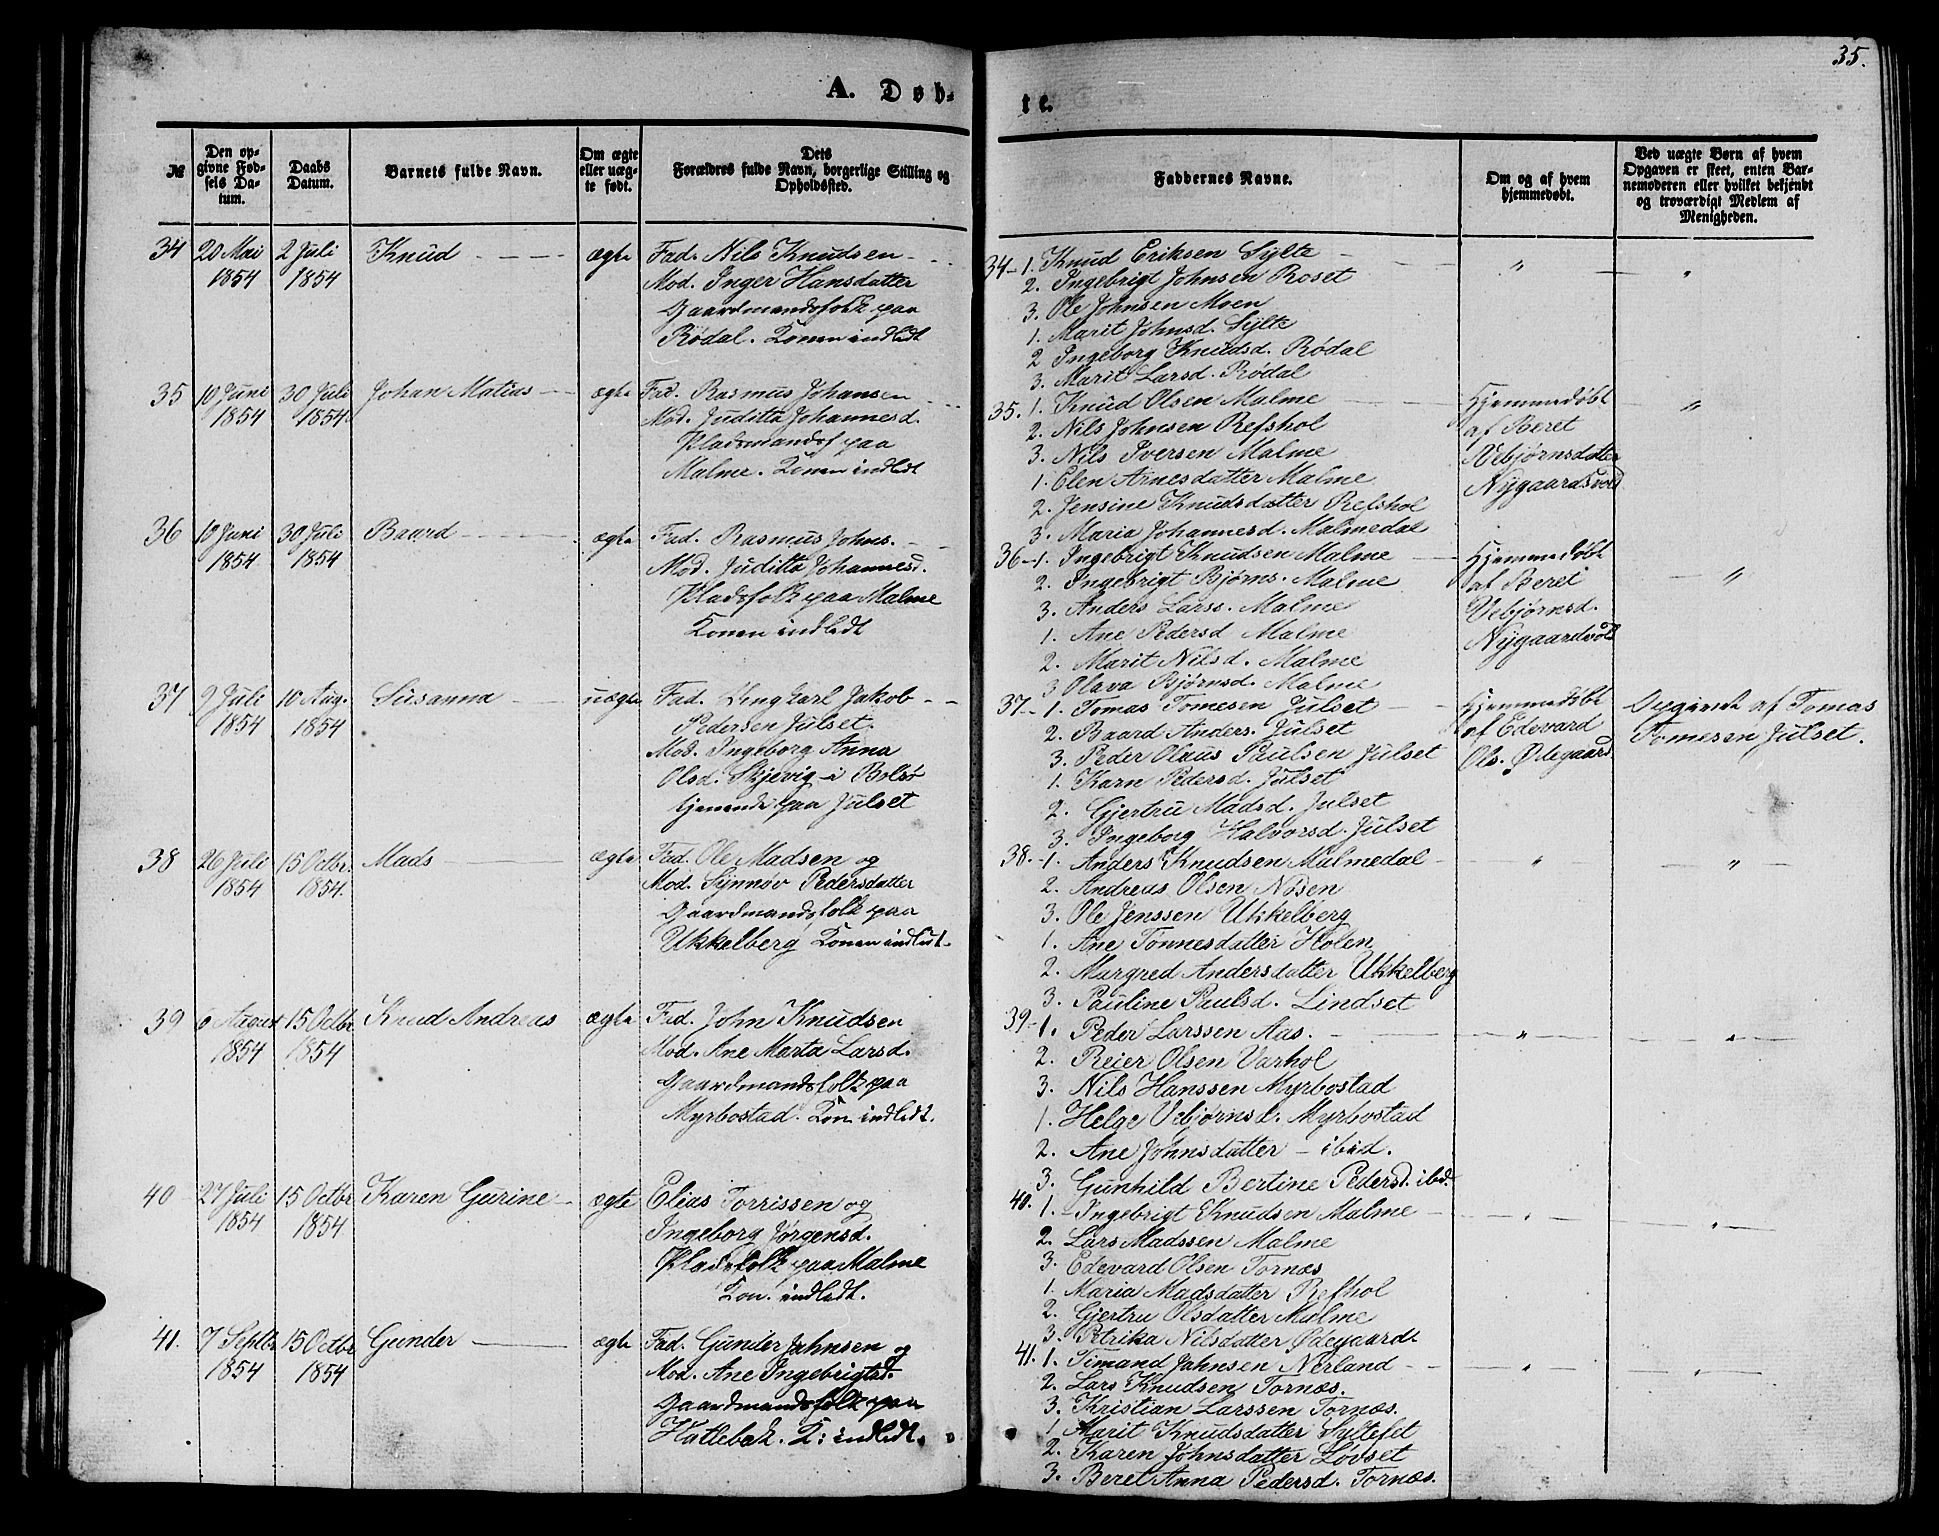 35.
A. Døb-
te.
№
Den op-
givne Fød-
sels Da-
tum.
Daabs
Datum.
Barnets fulde Navn.
Om ægte
eller uæg-
te født.
Dets
Forældres fulde Navn, borgerlige Stilling og
Opholdssted.
Faddernes Navne.
Om og af hvem
hjemmedøbt.
Ved uægte Børn af hvem
Opgaven er skeet, enten Bar-
nemoderen eller hvilket bekjendt
og troværdigt Medlem af
Menigheden.
34 20 Mai 2 Juli Knud ægte Fad. Nils Knudsen
1854 1854 Mod. Inger Hansdatter
Gaardmandsfolk paa
Rödal. Konen indledt
34-1. Knud Eriksen Sylte " "
2. Ingebrigt Johnsen Roset
3. Ole Johnsen Moen
1. Marit Johnsd. Sylte
2 Ingeborg Knudsd. Rödal
3. Marit Larsd. Rödal
35 10 Juni 30 Juli Johan Matias ægte Fad. Rasmus Johansen
1854 1854. Mod. Juditta Johannesd.
Pladsmandsf paa
Malme. Konen indledt
35. 1. Knud Olsen Malme Hjemmedøbt "
2. Nils Johnsen Refshol af Beret
3. Nils Iversen Malme Vebjørnsdatter
1. Elen Arnesdatter Malme Nygaardsvold
2. Jensine Knudsdatter Refshol
3. Maria Johannesd. Malmedal
36 10 Juni 30 Juli Baard ægte Fad. Rasmus Johns.
1854 1854 Mod. Juditta Johannesd.
Pladsfolk paa Malme
Konen indledt
36-1. Ingebrigt Knudsen Malme Hjemmedøbt "
2. Ingebrigt Bjørns. Malme af Beret
3. Anders Larss. Malme Vebjørnsd.
1. Ane Pedersd Malme Nygaardvold
2. Marit Nilsd. Malme
3 Olava Bjørnsd. Malme
37 9 Juli 10 Aug. Susanna uægte Fad. Ungkarl Jakob
1854 1854 Pedersen Julset.
Mod. Ingeborg Anna
Olsd. Skjevig i Bolsö
tjenende paa Julset
37-1. Tomas Tomesen Julset Hjemmedøbt Opgivet af Tomas
2. Baard Anders. Julset af Edevard Tomesen Julset.
3. Peder Olaus Paulsen Julset Ols. Ødegaard
1. Karn Pedersd. Julset
2. Gjertru Madsd. Julset
3. Ingeborg Halvorsd. Julset
38 26 Juli 15 Octbr. Mads ægte Fad. Ole Madsen og
1854 1854. Mod. Synnöv Pedersdatter
Gaardmandsfolk paa
Ukkelberg Konen indledt.
38.-1. Anders Knudsen Malmedal " "
2. Andreas Olsen Nøsen
3. Ole Jenssen Ukkelberg
1. Ane Tønnesdatter Holen
2. Margred Andersdatter Ukkelberg
3. Pauline Paulsd. Lindset
39 6 August 15 Octbr. Knud Andreas ægte Fad. John Knudsen
1854 1854 Mod. Ane Marta Larsd.
Gaardmandsfolk paa
Myrbostad. Kon indledt.
39-1. Peder Larssen Aas. " "
2. Reier Olsen Varhol
3. Nils Hanssen Myrbostad
1. Helge Vebjørnsd. Myrbostad
2. Ane Johnsdatter - ibid.
3. Gunhild Bertine Pedersd. ibd.
40 27 Juli 15 Octbr Karen Gurine ægte Elias Torrissen og
1854 1854 Ingeborg Jørgensd.
Pladsfolk paa Malme
Kon. indledt.
40. 1. Ingebrigt Knudsen Malme " "
2. Lars Madssen Malme
3. Edevard Olsen Tornæs
1. Maria Madsdatter Refhol
2. Gjertru Olsdatter Malme
3. Petrika Nilsdatter Ødegaard
41. 7 Septbr 15 Octbr Gunder ægte Fad. Gunder Jahnsen og
1854 1854 Mod. Ane Ingebrigtsd.
Gaardmandsfolk paa
Hatlebak. K: indledt.
41. 1. Timand Jahnsen Nerland " "
2. Lars Knudsen Tornæs.
3. Kristian Larssen Tornæs.
1 Marit Knudsdatter Syltefet
2. Karen Johnsdatter Lövset
3. Beret Anna Pedersd. Tornæs.